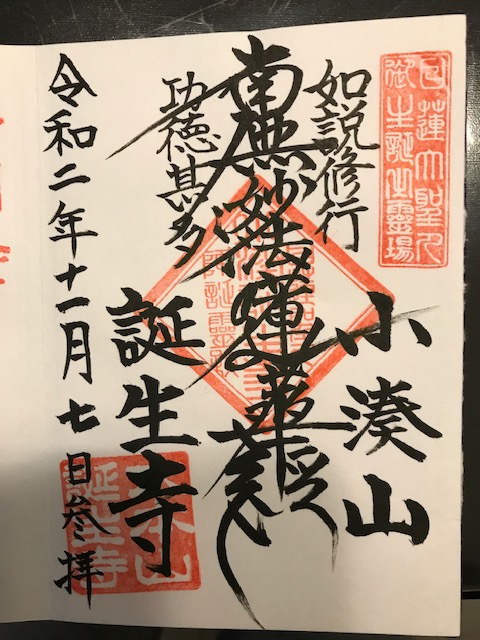 日蓮大聖人
御生誕生靈場
如説修行
小湊山
南無妙法蓮華経
功徳甚多
誕生寺
令和二年十一月七日参拝